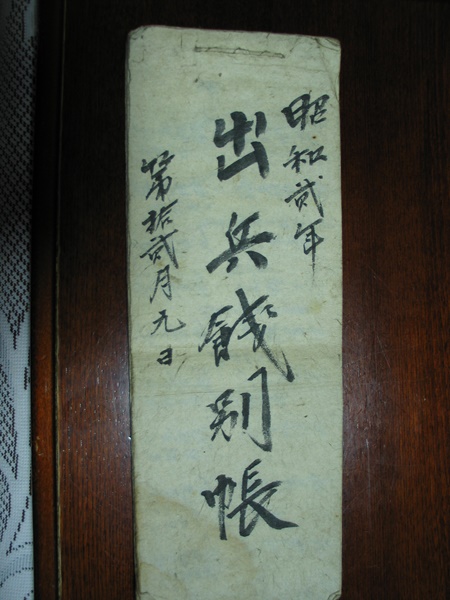 昭和貮年
出兵餞別帳
第拾貮月九日